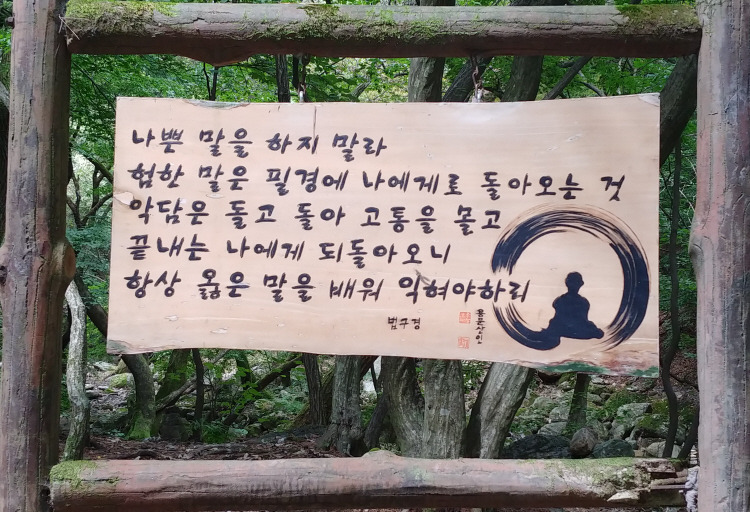 나쁜 말을 하지 말라
험한 말은 필경에 나에게로 돌아오는 것
악담은 돌고 돌아 고통을 몰고
끝내는 나에게 되돌아오니
항상 옳은 말을 배워 익혀야하리
법구경